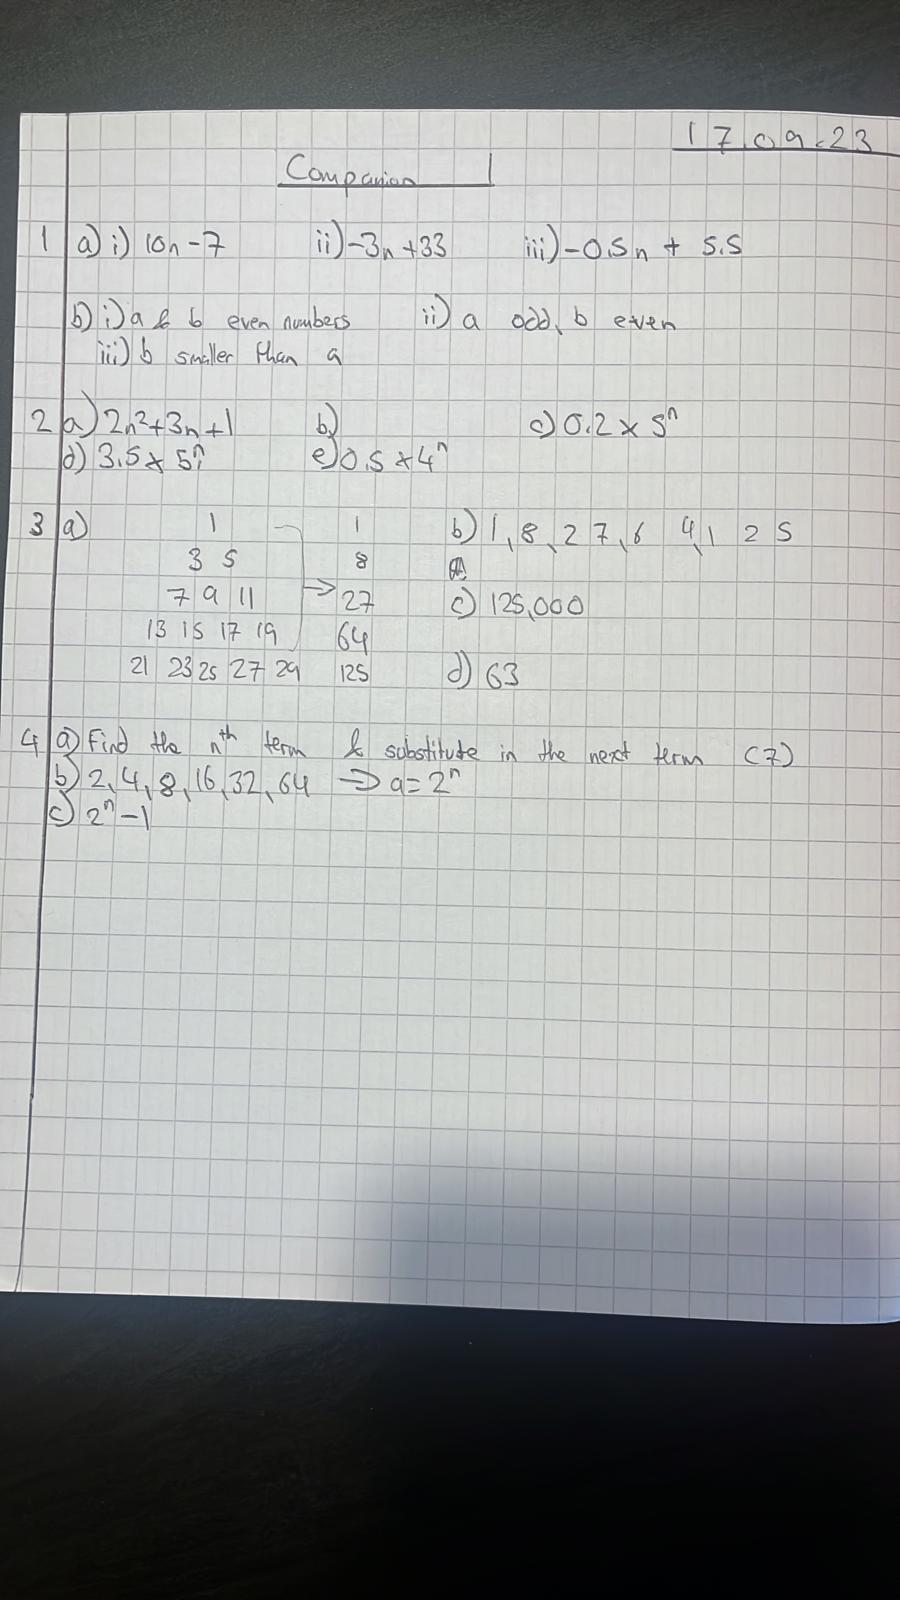 17.09.23
Companion 1
1 a) i) 10n - 7 ii) -3n + 33 iii) -0.5n + 5.5
b) i) a & b even numbers ii) a odd, b even
iii) b smaller than a
2 a) 2n²+3n+1 b) c) 0.2 × 5ⁿ
d) 3.5 × 5ⁿ e) 0.5 × 4ⁿ
3 a) 1 1 b) 1, 8, 27, 64, 125
3 5 8
7 9 11 → 27 c) 125,000
13 15 17 19 64
21 23 25 27 29 125 d) 63
4 a) Find the nth term & substitute in the next term (7)
b) 2, 4, 8, 16, 32, 64 ⇒ a = 2ⁿ
c) 2ⁿ - 1